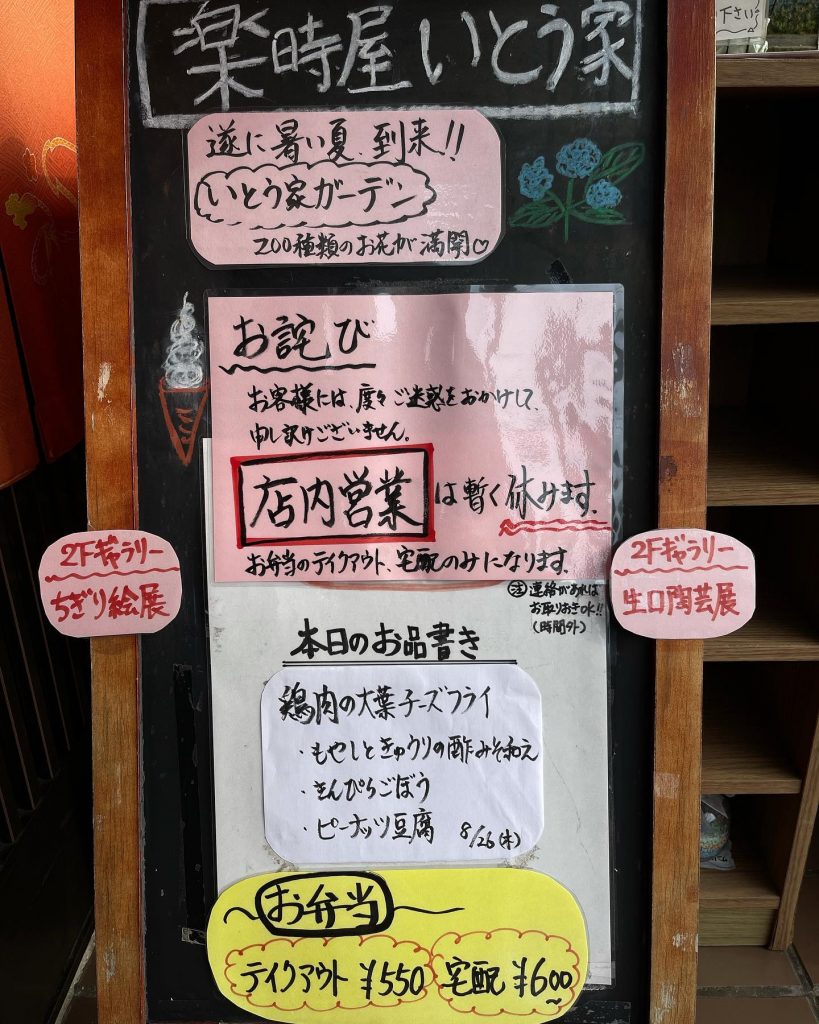 下さい
楽時屋 いとう家
遂に暑い夏 到来!!
いとう家ガーデン
200種類のお花が満開♡
お詫び
お客様には、度々ご迷惑をおかけして、
申し訳けございません。
店内営業は暫く休みます。
お弁当のテイクアウト、宅配のみになります。
㊟連絡があれば
お取りおきOK!!
(時間外)
2Fギャラリー
ちぎり絵展
2Fギャラリー
生口陶芸展
本日のお品書き
鶏肉の大葉チーズフライ
・もやしときゅうりの酢みそ和え
・きんぴらごぼう
・ピーナッツ豆腐 8/26(木)
お弁当
テイクアウト ¥550 宅配 ¥600